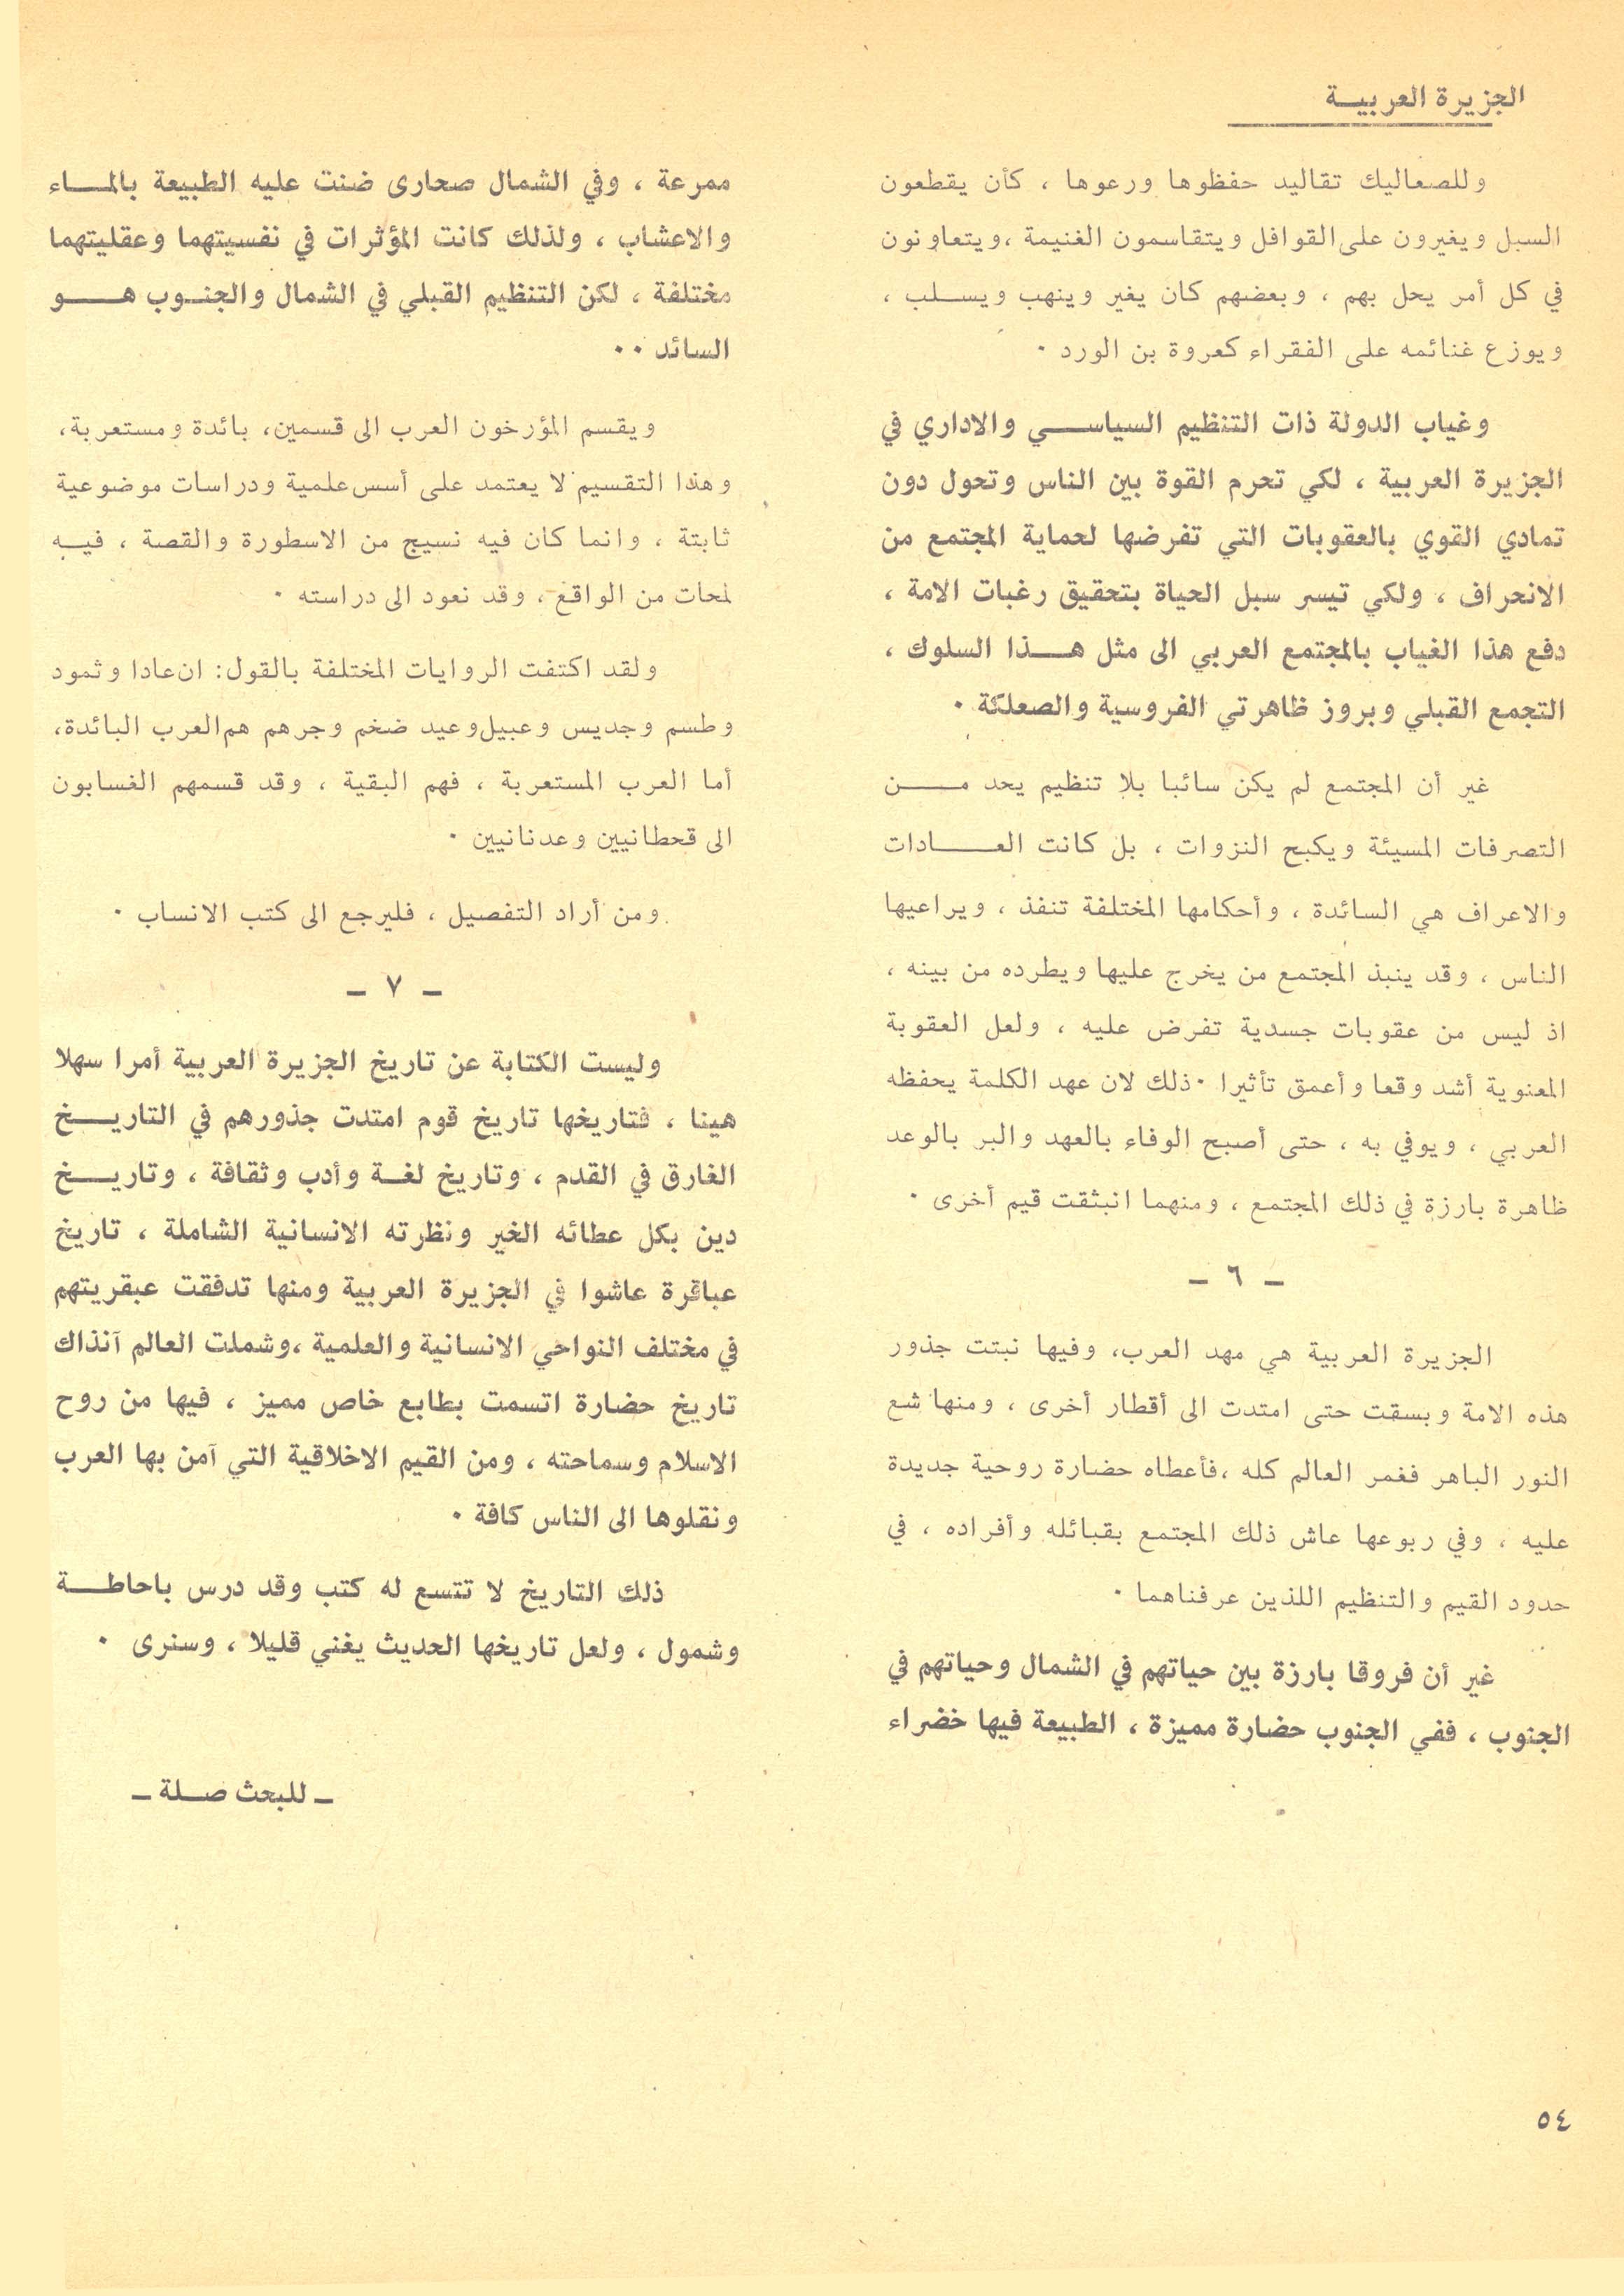 الجزيرة العربيـــة
وللصعاليك تقاليد حفظوها ورعوها ، كأن يقطعون
السبل ويغيرون على القوافل ويتقاسمون الغنيمة ،ويتعاونون
في كل أمر يحل بهم ، وبعضهم كان يغير وينهب ويسلب ،
ويوزع غنائمه على الفقراء كعروة بن الورد ٠
وغياب الدولة ذات التنظيم السياسي والاداري في
الجزيرة العربية ، لكي تحرم القوة بين الناس وتحول دون
تمادي القوي بالعقوبات التي تفرضها لحماية المجتمع من
الانحراف ، ولكي تيسر سبل الحياة بتحقيق رغبات الامة ،
دفع هذا الغياب بالمجتمع العربي الى مثل هذا السلوك ،
التجمع القبلي وبروز ظاهرتي الفروسية والصعلكة ٠
غير أن المجتمع لم يكن سائبا بلا تنظيم يحد من
التصرفات المسيئة ويكبح النزوات ، بل كانت العادات
والاعراف هي السائدة ، وأحكامها المختلفة تنفذ ، ويراعيها
الناس ، وقد ينبذ المجتمع من يخرج عليها ويطرده من بينه ،
اذ ليس من عقوبات جسدية تفرض عليه ، ولعل العقوبة
المعنوية أشد وقعا وأعمق تأثيرا ٠ ذلك لان عهد الكلمة يحفظه
العربي ، ويوفي به ، حتى أصبح الوفاء بالعهد والبر بالوعد
ظاهرة بارزة في ذلك المجتمع ، ومنهما انبثقت قيم أخرى ٠
ــ ٦ ــ
الجزيرة العربية هي مهد العرب، وفيها نبتت جذور
هذه الامة وبسقت حتى امتدت الى أقطار أخرى ، ومنها شع
النور الباهر فغمر العالم كله ،فأعطاه حضارة روحية جديدة
عليه ، وفي ربوعها عاش ذلك المجتمع بقبائله وأفراده ، في
حدود القيم والتنظيم اللذين عرفناهما ٠
غير أن فروقا بارزة بين حياتهم في الشمال وحياتهم في
الجنوب ، ففي الجنوب حضارة مميزة ، الطبيعة فيها خضراء
ممرعة ، وفي الشمال صحارى ضنت عليه الطبيعة بالماء
والاعشاب ، ولذلك كانت المؤثرات في نفسيتهما وعقليتهما
مختلفة ، لكن التنظيم القبلي في الشمال والجنوب هو
السائد ٠٠
ويقسم المؤرخون العرب الى قسمين، بائدة ومستعربة،
وهذا التقسيم لا يعتمد على أسس علمية ودراسات موضوعية
ثابتة ، وانما كان فيه نسيج من الاسطورة والقصة ، فيه
لمحات من الواقع ، وقد نعود الى دراسته ٠
ولقد اكتفت الروايات المختلفة بالقول: ان عادا وثمود
وطسم وجديس وعبيل وعيد ضخم وجرهم هم العرب البائدة،
أما العرب المستعربة ، فهم البقية ، وقد قسمهم الغسابون
الى قحطانيين وعدنانيين ٠
ومن أراد التفصيل ، فليرجع الى كتب الانساب ٠
ــ ٧ ــ
وليست الكتابة عن تاريخ الجزيرة العربية أمرا سهلا
هينا ، فتاريخها تاريخ قوم امتدت جذورهم في التاريخ
الغارق في القدم ، وتاريخ لغة وأدب وثقافة ، وتاريخ
دين بكل عطائه الخير ونظرته الانسانية الشاملة ، تاريخ
عباقرة عاشوا في الجزيرة العربية ومنها تدفقت عبقريتهم
في مختلف النواحي الانسانية والعلمية ،وشملت العالم آنذاك
تاريخ حضارة اتسمت بطابع خاص مميز ، فيها من روح
الاسلام وسماحته ، ومن القيم الاخلاقية التي آمن بها العرب
ونقلوها الى الناس كافة ٠
ذلك التاريخ لا تتسع له كتب وقد درس باحاطة
وشمول ، ولعل تاريخها الحديث يغني قليلا ، وسنرى ٠
ــ للبحث صلة ــ
٥٤